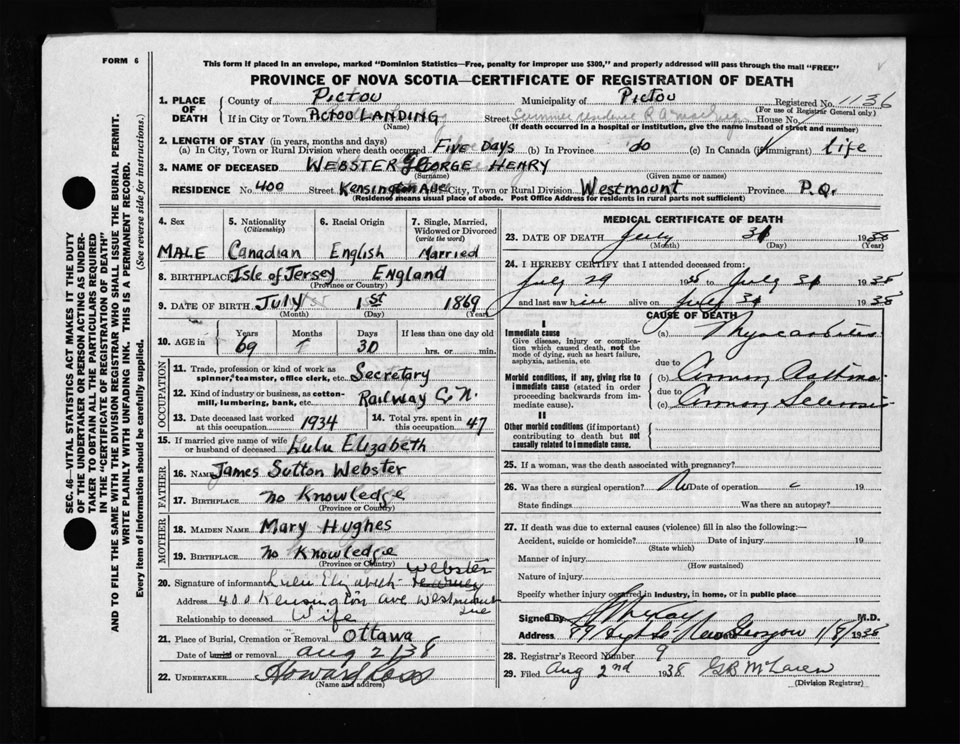 FORM 6
This form if placed in an envelope, marked "Dominion Statistics—Free, penalty for improper use $300," and properly addressed will pass through the mail "FREE"
PROVINCE OF NOVA SCOTIA—CERTIFICATE OF REGISTRATION OF DEATH
SEC. 46—VITAL STATISTICS ACT MAKES IT THE DUTY
OF THE UNDERTAKER OR PERSON ACTING AS UNDER-
TAKER TO OBTAIN ALL THE PARTICULARS REQUIRED
IN THE "CERTIFICATE OF REGISTRATION OF DEATH"
AND TO FILE THE SAME WITH THE DIVISION REGISTRAR WHO SHALL ISSUE THE BURIAL PERMIT.
WRITE PLAINLY WITH UNFADING INK. THIS IS A PERMANENT RECORD.
Every item of information should be carefully supplied. (See reverse side for instructions.)
1. PLACE OF DEATH County of Pictou Municipality of Pictou Registered No. 1136
(For use of Registrar General only)
If in City or Town Pictou LANDING Street Summer House No.
(Name) (If death occurred in a hospital or institution, give the name instead of street and number)
2. LENGTH OF STAY (in years, months and days)
(a) In City, Town or Rural Division where death occurred Five Days (b) In Province do (c) In Canada (if immigrant) life
3. NAME OF DECEASED WEBSTER GEORGE HENRY
(Surname) (Given name or names)
RESIDENCE No 400 Street Kensington Ave City, Town or Rural Division Westmount Province P.Q.
(Residence means usual place of abode. Post Office Address for residents in rural parts not sufficient)
4. Sex 5. Nationality 6. Racial Origin 7. Single, Married,
(Citizenship) Widowed or Divorced
(write the word)
MALE Canadian English Married
8. BIRTHPLACE Isle of Jersey England
(Province or Country)
9. DATE OF BIRTH July 1st 1869
(Month) (Day) (Year)
10. AGE in Years Months Days If less than one day old
69 30 hrs. or min.
OCCUPATION
11. Trade, profession or kind of work as
spinner, teamster, office clerk, etc. Secretary
12. Kind of industry or business, as cotton-
mill, lumbering, bank, etc. Railway C.N.
13. Date deceased last worked
at this occupation 1934
14. Total yrs. spent in
this occupation 47
15. If married give name of wife
or husband of deceased Lulu Elizabeth
FATHER
16. Name James Sutton Webster
17. BIRTHPLACE No Knowledge
(Province or Country)
MOTHER
18. MAIDEN NAME Mary Hughes
19. BIRTHPLACE No Knowledge
(Province or Country)
20. Signature of informant Lulu Elizabeth Webster
Address 400 Kensington Ave Westmount Que
Relationship to deceased Wife
21. Place of Burial, Cremation or Removal Ottawa
Date of burial or removal Aug 2/38
22. UNDERTAKER Howard Ross
(Name and address)
MEDICAL CERTIFICATE OF DEATH
23. DATE OF DEATH July 31 1938
(Month) (Day) (Year)
24. I HEREBY CERTIFY that I attended deceased from:
July 29 1938 to July 31 1938
and last saw him alive on July 31 1938
CAUSE OF DEATH
I
Immediate cause (a) Myocarditis
Give disease, injury or complica-
tion which caused death, not the
mode of dying, such as heart failure,
asphyxia, asthenia, etc
due to
Morbid conditions, if any, giving rise to (b)
immediate cause (stated in order due to
proceeding backwards from im- (c)
mediate cause).
II
Other morbid conditions (if important)
contributing to death but not
causally related to immediate cause.
25. If a woman, was the death associated with pregnancy?
26. Was there a surgical operation? No Date of operation 19
State findings Was there an autopsy?
27. If death was due to external causes (violence) fill in also the following:—
Accident, suicide or homicide? Date of injury 19
(State which)
Manner of injury
(How sustained)
Nature of injury
Specify whether injury occurred in industry, in home, or in public place
Signed by M.D.
Address High St New Glasgow 1/8/1938
28. Registrar's Record Number 9
29. Filed Aug 2nd 1938 G B McLaren
(Division Registrar)